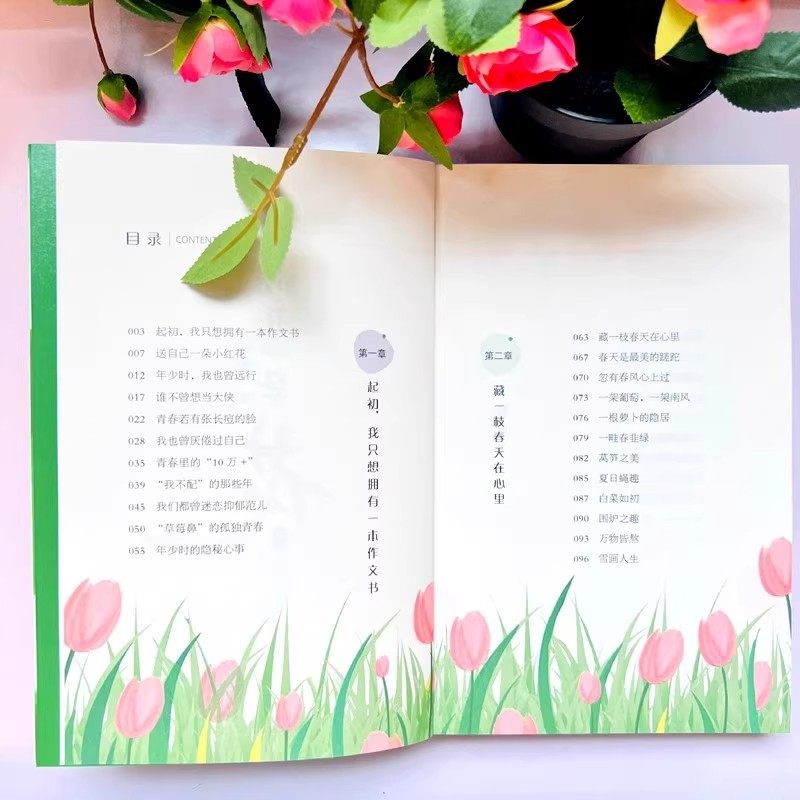 目录 | CONTENT
003 起初，我只想拥有一本作文书
007 送自己一朵小红花
012 年少时，我也曾远行
017 谁不曾想当大侠
022 青春若有张长痘的脸
028 我也曾厌倦过自己
035 青春里的“10 万 +”
039 “我不配”的那些年
045 我们都曾迷恋抑郁范儿
050 “草莓鼻”的孤独青春
055 年少时的隐秘心事
第一章
起初，我只想拥有一本作文书
第二章
藏一枝春天在心里
063 藏一枝春天在心里
067 春天是最美的蹉跎
070 忽有春风心上过
073 一架葡萄，一架南风
076 一根萝卜的隐居
079 一畦春韭绿
082 莴笋之美
085 夏日蝇趣
087 白菜如初
090 围炉之趣
093 万物皆熬
096 雪画人生